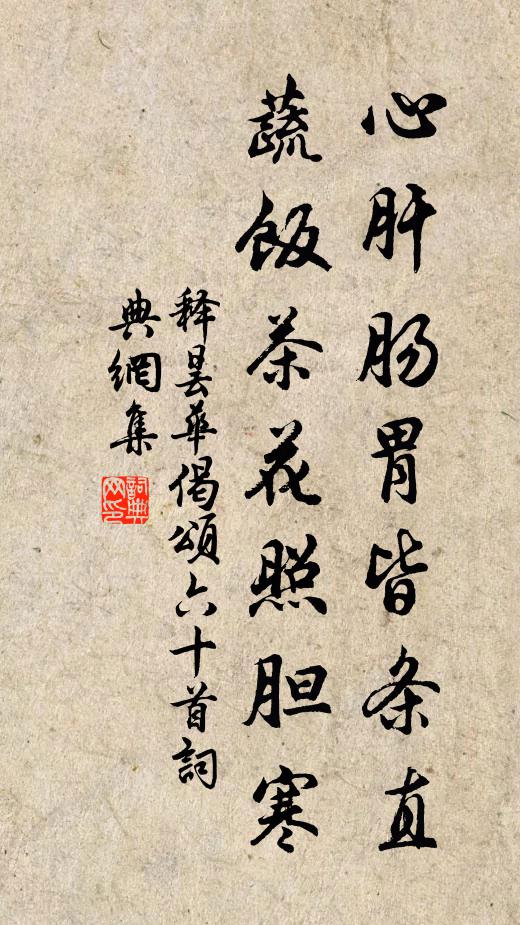 心肝肠胃皆条直
蔬飯茶花照胆寒
释昙华偈頌六十首詞
典網集
詞典
网印